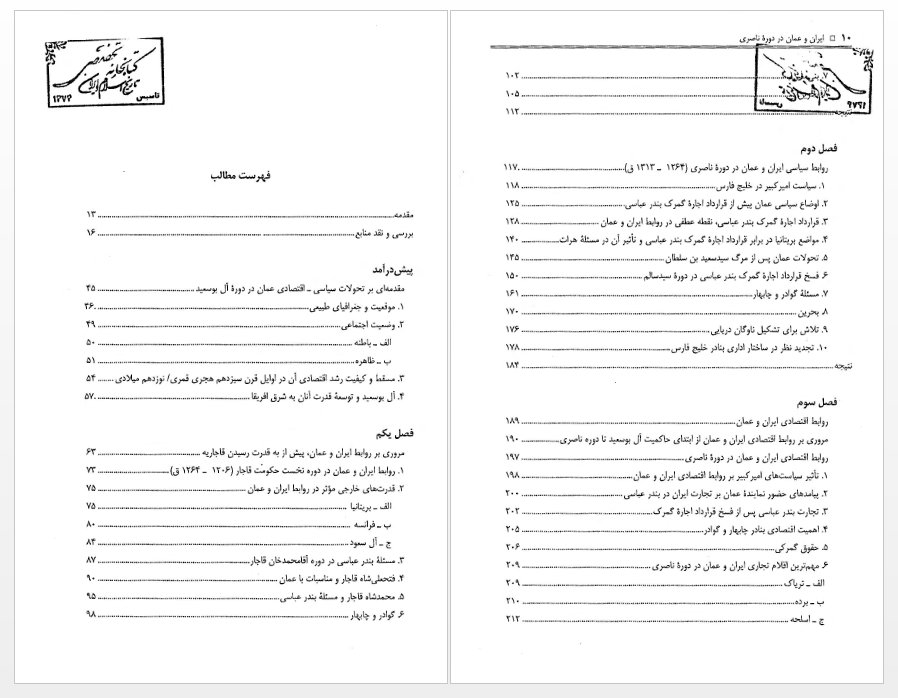 کتابخانه تخصصی
تاریخ اسلام و ایران
تاسیس
فهرست مطالب
مقدمه ........ ۱۳
بررسی و نقد منابع ........ ۱۶
پیش‌درآمد
مقدمه‌ای بر تحولات سیاسی ـ اقتصادی عمان در دورهٔ آل بوسعید ........ ۴۵
۱. موقعیت و جغرافیای طبیعی ........ ۴۶
۲. وضعیت اجتماعی ........ ۴۹
الف ـ باطنه ........ ۵۰
ب ـ ظاهره ........ ۵۱
۳. مسقط و کیفیت رشد اقتصادی آن در اوایل قرن سیزدهم هجری قمری/ نوزدهم میلادی ........ ۵۴
۴. آل بوسعید و توسعهٔ قدرت آنان به شرق افریقا ........ ۵۷
فصل یکم
مروری بر روابط ایران و عمان، پیش از به قدرت رسیدن قاجاریه ........ ۶۳
۱. روابط ایران و عمان در دوره نخست حکومت قاجار (۱۲۰۶ ـ ۱۲۶۴ ق) ........ ۷۳
۲. قدرت‌های خارجی مؤثر در روابط ایران و عمان ........ ۷۵
الف ـ بریتانیا ........ ۷۵
ب ـ فرانسه ........ ۸۰
ج ـ آل سعود ........ ۸۴
۳. مسئلهٔ بندر عباسی در دوره آقامحمدخان قاجار ........ ۸۷
۴. فتحعلی‌شاه قاجار و مناسبات با عمان ........ ۹۰
۵. محمدشاه قاجار و مسئلهٔ بندر عباسی ........ ۹۵
۶. گوادر و چابهار ........ ۹۸
۱۰ □ ایران و عمان در دورهٔ ناصری
۷. ........ ۱۰۲
........ ۱۰۵
نتیجه ........ ۱۱۲
فصل دوم
روابط سیاسی ایران و عمان در دورهٔ ناصری (۱۲۶۴ ـ ۱۳۱۳ ق) ........ ۱۱۷
۱. سیاست امیرکبیر در خلیج فارس ........ ۱۱۸
۲. اوضاع سیاسی عمان پیش از قرارداد اجارهٔ گمرک بندر عباسی ........ ۱۲۵
۳. قرارداد اجارهٔ گمرک بندر عباسی، نقطه عطفی در روابط ایران و عمان ........ ۱۲۸
۴. مواضع بریتانیا در برابر قرارداد اجارهٔ گمرک بندر عباسی و تأثیر آن در مسئلهٔ هرات ........ ۱۴۰
۵. تحولات عمان پس از مرگ سیدسعید بن سلطان ........ ۱۴۵
۶. فسخ قرارداد اجارهٔ گمرک بندر عباسی در دورهٔ سیدسالم ........ ۱۵۰
۷. مسئلهٔ گوادر و چابهار ........ ۱۶۱
۸. بحرین ........ ۱۷۰
۹. تلاش برای تشکیل ناوگان دریایی ........ ۱۷۶
۱۰. تجدید نظر در ساختار اداری بنادر خلیج فارس ........ ۱۷۸
نتیجه ........ ۱۸۴
فصل سوم
روابط اقتصادی ایران و عمان ........ ۱۸۹
مروری بر روابط اقتصادی ایران و عمان از ابتدای حاکمیت آل بوسعید تا دوره ناصری ........ ۱۹۰
روابط اقتصادی ایران و عمان در دورهٔ ناصری ........ ۱۹۷
۱. تأثیر سیاست‌های امیرکبیر بر روابط اقتصادی ایران و عمان ........ ۱۹۸
۲. پیامدهای حضور نمایندهٔ عمان بر تجارت ایران در بندر عباسی ........ ۲۰۰
۳. تجارت بندر عباسی پس از فسخ قرارداد اجارهٔ گمرک ........ ۲۰۲
۴. اهمیت اقتصادی بنادر چابهار و گوادر ........ ۲۰۵
۵. حقوق گمرکی ........ ۲۰۶
۶. مهم‌ترین اقلام تجاری ایران و عمان در دورهٔ ناصری ........ ۲۰۹
الف ـ تریاک ........ ۲۰۹
ب ـ برده ........ ۲۱۰
ج ـ اسلحه ........ ۲۱۲